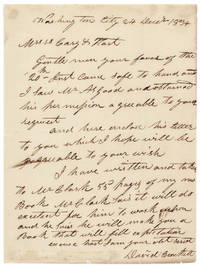 Washington City 24 Decr 1834
Messrs Cary & Hart
Gentlemen your faver of the
20 Inst Came safe to hand and
I saw Mr Osgood and obtained
his permission agreeable to your
request
and here enclose his letter
to you which I hope will be
agreeable to your wish
I have written and taken
to Mr Clark 55 pages of my
Book Mr Clark says it will do
excelent for him to work upon
and he says he will make you a
Book that will fill expectation
excuse hast I am your obt servt
David Crockett